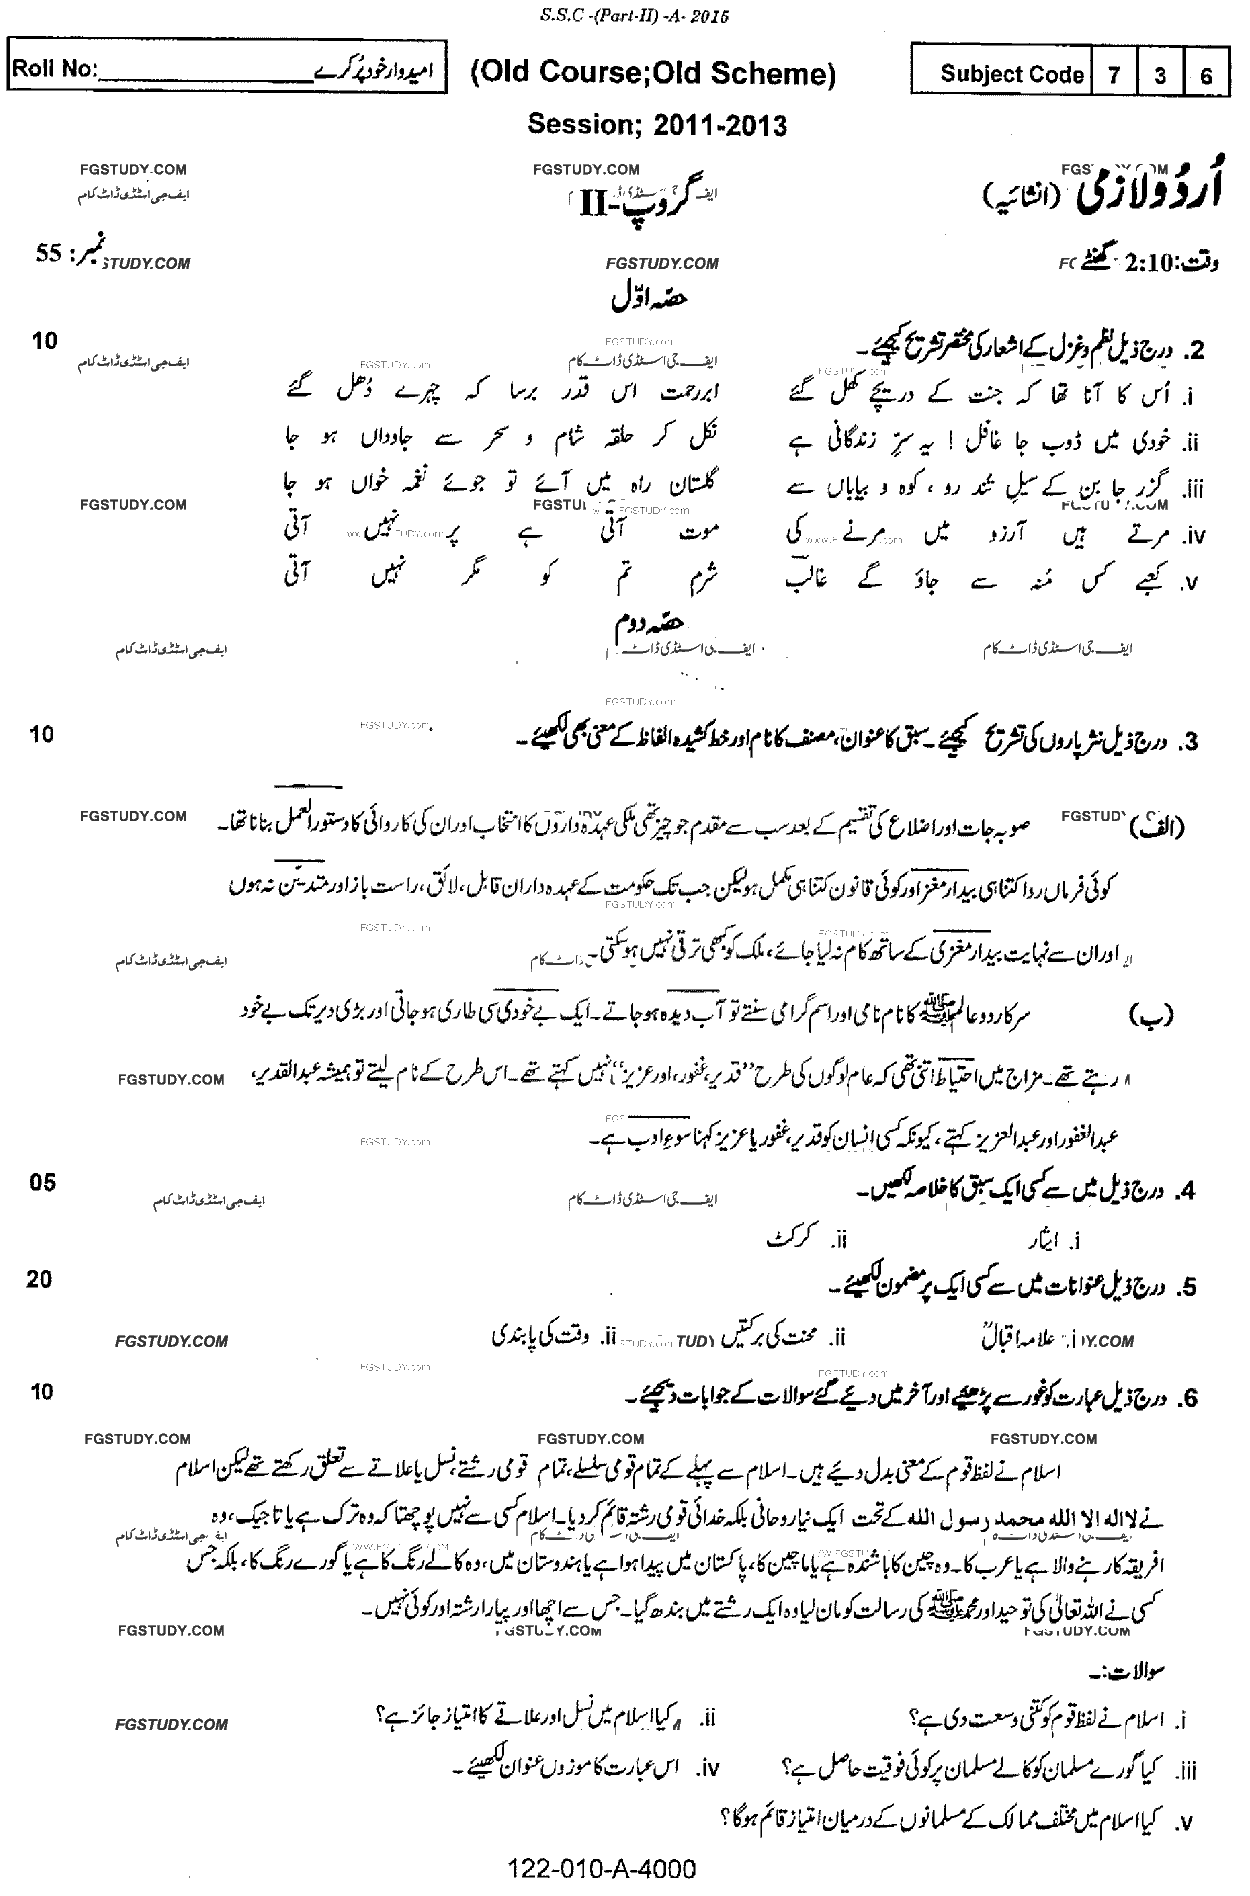 S.S.C -(Part-II) -A- 2015
Roll No:____________ امیدوار خود پُر کرے (Old Course;Old Scheme) Subject Code 7 3 6
Session; 2011-2013
FGSTUDY.COM FGSTUDY.COM
اُردو لازمی (انشائیہ) گروپ-II ایف جی اسٹڈی ڈاٹ کام
وقت:2:10 گھنٹے FGSTUDY.COM نمبر: 55
حصّہ اوّل
2. درج ذیل نظم و غزل کے اشعار کی مختصر تشریح کیجئے۔ 10
i. اُس کا آنا تھا کہ جنت کے دریچے کھل گئے ابررحمت اس قدر برسا کہ چہرے دُھل گئے
ii. خودی میں ڈوب جا غافل ! یہ سرِّ زندگانی ہے نکل کر حلقہ شام و سحر سے جاوداں ہو جا
iii. گزر جا بن کے سیلِ تُند رو ، کوہ و بیاباں سے گلستان راہ میں آئے تو جوئے نغمہ خواں ہو جا
FGSTUDY.COM
iv. مرتے ہیں آرزو میں مرنے کی موت آتی ہے پر نہیں آتی
v. کعبے کس مُنہ سے جاؤ گے غالبؔ شرم تم کو مگر نہیں آتی
حصّہ دوم
ایف جی اسٹڈی ڈاٹ کام ایف جی اسٹڈی ڈاٹ کام
3. درج ذیل نثر پاروں کی تشریح کیجئے۔ سبق کا عنوان، مصنف کا نام اور خط کشیدہ الفاظ کے معنی بھی لکھیئے۔ 10
(الف) صوبہ جات اور اضلاع کی تقسیم کے بعد سب سے مقدم جو چیز تھی ملکی عہدہ داروں کا انتخاب اور ان کی کاروائی کا دستور العمل بنانا تھا۔ FGSTUDY.COM
کوئی فرماں روا کتنا ہی بیدار مغز اور کوئی قانون کتنا ہی مکمل ہو لیکن جب تک حکومت کے عہدہ داران قابل، لائق، راست باز اور متدیّن نہ ہوں
اور ان سے نہایت بیدار مغزی کے ساتھ کام نہ لیا جائے، ملک کو کبھی ترقی نہیں ہو سکتی۔ ایف جی اسٹڈی ڈاٹ کام
(ب) سرکار دو عالم ﷺ کا نام نامی اور اسم گرامی سنتے تو آب دیدہ ہو جاتے۔ ایک بے خودی سی طاری ہو جاتی اور بڑی دیر تک بے خود
رہتے تھے۔ مزاج میں احتیاط اتنی تھی کہ عام لوگوں کی طرح "قدیر، غفور، اور عزیز" نہیں کہتے تھے۔ اس طرح کے نام لیتے تو ہمیشہ عبدالقدیر، FGSTUDY.COM
عبدالغفور اور عبدالعزیز کہتے، کیونکہ کسی انسان کو قدیر، غفور یا عزیز کہنا سوءِ ادب ہے۔
4. درج ذیل میں سے کسی ایک سبق کا خلاصہ لکھیں۔ 05
i. ایثار ii. کرکٹ
5. درج ذیل عنوانات میں سے کسی ایک پر مضمون لکھیئے۔ 20
i. علامہ اقبالؒ ii. محنت کی برکتیں ii. وقت کی پابندی FGSTUDY.COM
6. درج ذیل عبارت کو غور سے پڑھیئے اور آخر میں دیئے گئے سوالات کے جوابات دیجئے۔ 10
FGSTUDY.COM FGSTUDY.COM FGSTUDY.COM
اسلام نے لفظ قوم کے معنی بدل دیئے ہیں۔ اسلام سے پہلے کے تمام قومی سلسلے، تمام قومی رشتے، نسل یا علاقے سے تعلق رکھتے تھے لیکن اسلام
نے لا اله الا الله محمد رسول الله کے تحت ایک نیا روحانی بلکہ خدائی قومی رشتہ قائم کر دیا۔ اسلام کسی سے نہیں پوچھتا کہ وہ ترک ہے یا تاجیک، وہ
افریقہ کا رہنے والا ہے یا عرب کا۔ وہ چین کا باشندہ ہے یا ماچین کا، پاکستان میں پیدا ہوا ہے یا ہندوستان میں، وہ کالے رنگ کا ہے یا گورے رنگ کا، بلکہ جس
کسی نے اللہ تعالیٰ کی توحید اور محمد ﷺ کی رسالت کو مان لیا وہ ایک رشتے میں بندھ گیا۔ جس سے اچھا اور پیارا رشتہ اور کوئی نہیں۔
FGSTUDY.COM
سوالات:۔
i. اسلام نے لفظ قوم کو کتنی وسعت دی ہے؟ ii. کیا اسلام میں نسل اور علاقے کا امتیاز جائز ہے؟ FGSTUDY.COM
iii. کیا گورے مسلمان کو کالے مسلمان پر کوئی فوقیت حاصل ہے؟ iv. اس عبارت کا موزوں عنوان لکھیئے۔
v. کیا اسلام میں مختلف ممالک کے مسلمانوں کے درمیان امتیاز قائم ہوگا؟
122-010-A-4000